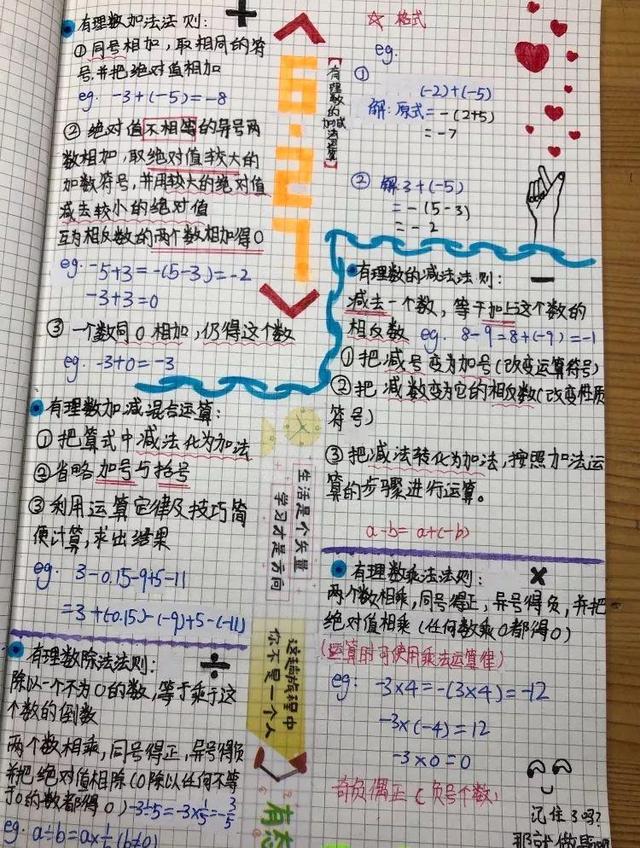 有理数加法法则:
①同号相加,取相同的符
号,并把绝对值相加
eg. -3+(-5)=-8
②绝对值不相等的异号两
数相加,取绝对值较大的
加数符号,并用较大的绝对值
减去较小的绝对值
互为相反数的两个数相加得0
eg: -5+3=-(5-3)=-2
-3+3=0
③一个数同0相加,仍得这个数
eg. -3+0=-3
6.27
【有理数的加减法运算】
☆ 格式
eg.
①
(-2)+(-5)
解:原式=-(2+5)
=-7
② 解:3+(-5)
=-(5-3)
=-2
有理数的减法法则:
减去一个数,等于加上这个数的
相反数 eg. 8-9=8+(-9)=-1
①把减号变为加号(改变运算符号)
②把减数变为它的相反数(改变性质
符号)
③把减法转化为加法,按照加法运
算的步骤进行运算。
a-b=a+(-b)
有理数加减混合运算:
①把算式中减法化为加法
②省略加号与括号
③利用运算定律及技巧简
便计算,求出结果
eg: 3-0.15-9+5-11
=3+(-0.15)-(-9)+5-(-11)
生活是个矢量
学习才是方向
有理数乘法法则: ×
两个数相乘,同号得正,异号得负,并把
绝对值相乘(任何数乘0都得0)
(运算时可使用乘法运算律)
eg: -3×4=-(3×4)=-12
-3×(-4)=12
-3×0=0
奇负偶正(负号个数)
记住了吗?
那就做题吧
有理数除法法则: ÷
除以一个不为0的数,等于乘于这
个数的倒数
两个数相乘,同号得正,异号得负
并把绝对值相除(0除以任何不等
于0的数都得0) -3÷5=-3×1/5=-3/5
eg: a÷b=a×1/b(b≠0)
这趟旅程中
你不是一个人
有态